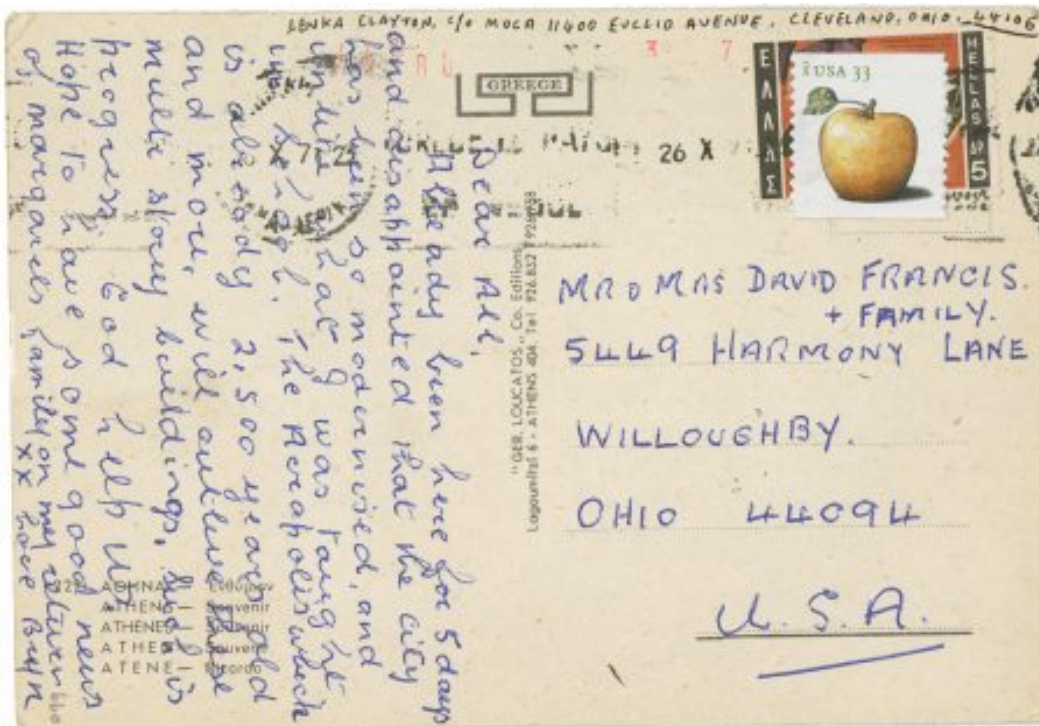 LENKA CLAYTON, C/O MOCA 11400 EUCLID AVENUE, CLEVELAND, OHIO, 44106
GREECE
26 X
ΕΛΛΑΣ
HELLAS ΔΡ 5
USA 33
Dear All,
Already been here for 5 days
and disappointed that the city
has been so modernised, and
unlike what I was taught
in school. The Acropolis which
is already 2,500 years old
and more, will outlive the
multi story buildings, such is
progress God help us
Hope to have some good news
of margarets family on my return
xx love
"GER. LOUCATOS" Co. Editions
Lagoumitzi 6 - ATHENS 404, Tel 926.832
MR & MRS DAVID FRANCIS.
+ FAMILY.
5449 HARMONY LANE
WILLOUGHBY.
OHIO 44094
U.S.A.
ΑΘΗΝΑΙ
ATHENS — Souvenir
ATHENES — Souvenir
ATHEN — Souvenir
ATENE — Ricordo